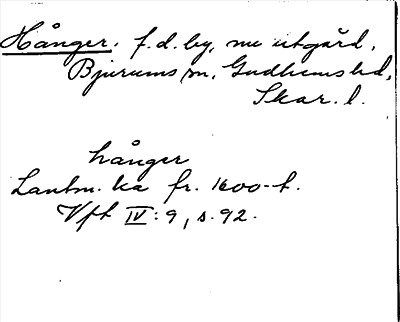 Hånger, f.d. by, nu utgård,
Bjurums sn, Gudhems hd,
Skar. l.
hånger
Lantm. ka fr. 1600-t.
Vft IV: 9, s. 92.